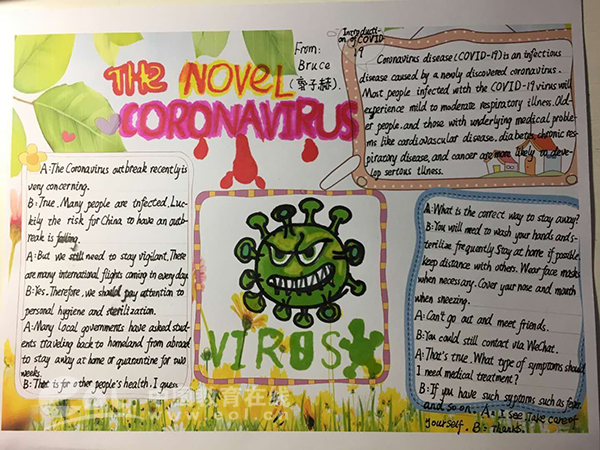 THE NOVEL
CORONAVIRUS
From:
Bruce
Introducti-
on of COVID
19
Coronavirus disease (COVID-19) is an infectious
disease caused by a newly discovered coronavirus.
Most people infected with the COVID-19 virus will
experience mild to moderate respiratory illness. Old-
er people, and those with underlying medical proble-
ms like cardiovascular disease, diabetes, chronic res-
piratory disease, and cancer are more likely to deve-
lop serious illness.
A: The Coronavirus outbreak recently is
very concerning.
B: True. Many people are infected. Luc-
kily the risk for China to have an outb-
reak is falling.
A: But we still need to stay vigilant. There
are many international flights coming in every day.
B: Yes. Therefore, we should pay attention to
personal hygiene and sterilization.
A: Many local governments have asked stud-
ents traveling back to homeland from abroad
to stay away at home or quarantine for two
weeks.
B: That is for other people's health, I guess.
VIRUS
A: What is the correct way to stay away?
B: You will need to wash your hands and s-
terilize frequently. Stay at home if possible.
keep distance with others. Wear face masks
when necessary. Cover your nose and mouth
when sneezing.
A: Can't go out and meet friends.
B: You could still contact via WeChat.
A: That's true. What type of symptoms should
I need medical treatment?
B: If you have such syptoms such as fever
and so on. A: I see. Take care of
yourself. B: Thanks.
中国教育在线
www.eol.cn